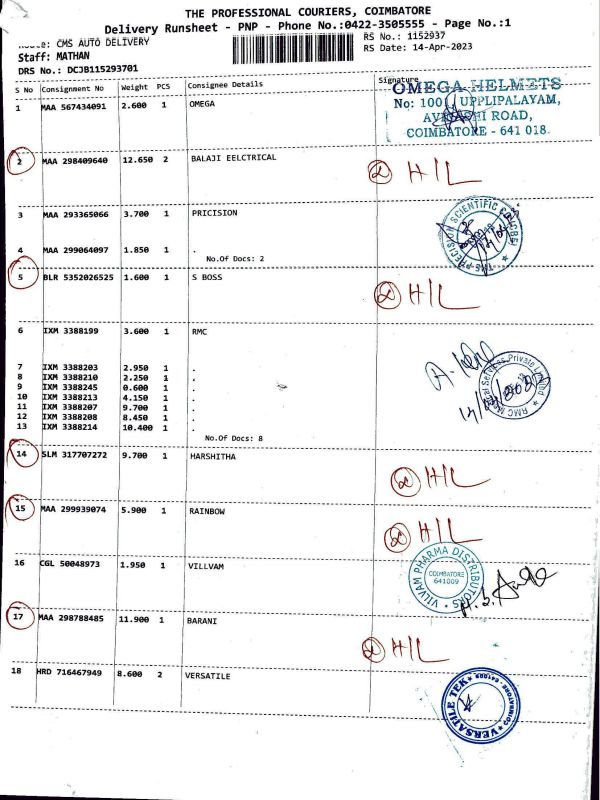 THE PROFESSIONAL COURIERS, COIMBATORE
Delivery Runsheet - PNP - Phone No.:0422-3505555 - Page No.:1
CMS AUTO DELIVERY
RS No.: 1152937
Staff: MATHAN
RS Date: 14-Apr-2023
DRS No.: DCJB115293701
S No Consignment No Weight PCS Consignee Details Signature
1 MAA 567434091 2.600 1 OMEGA
OMEGA HELMETS
No: 1001, UPPLIPALAYAM,
AVINASHI ROAD,
COIMBATORE - 641 018.
2 MAA 298409640 12.650 2 BALAJI EELCTRICAL
H/L
3 MAA 293365066 3.700 1 PRICISION
4 MAA 299064097 1.850 1
No.Of Docs: 2
5 BLR 5352026525 1.600 1 S BOSS
H/L
6 IXM 3388199 3.600 1 RMC
7 IXM 3388203 2.950 1 .
8 IXM 3388210 2.250 1 .
9 IXM 3388245 0.600 1 .
10 IXM 3388213 4.150 1 .
11 IXM 3388207 9.700 1 .
12 IXM 3388208 8.450 1 .
13 IXM 3388214 10.400 1 .
No.Of Docs: 8
RMC Medical Services Private Limited
14 SLM 317707272 9.700 1 HARSHITHA
H/L
15 MAA 299939074 5.900 1 RAINBOW
H/L
16 CGL 50048973 1.950 1 VILLVAM
VILVAM PHARMA DISTRIBUTORS
COIMBATORE
641009
17 MAA 298788485 11.900 1 BARANI
H/L
18 HRD 716467949 8.600 2 VERSATILE
VERSATILE TEK